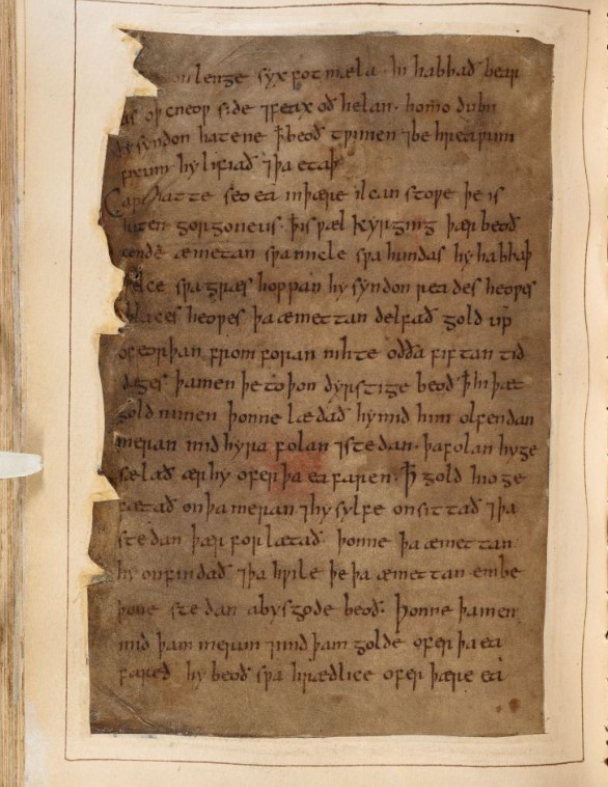 lenge syx fot mæla · hi habbað bear
as oþ cneow side ⁊ feax oð helan · homo dubii
hy syndon hatene ꝥ beoð twimen ⁊ be hreawum
fixum hy lifiað ⁊ þa etaþ
Capi hatte seo ea in þære ilcan stowe þe is
haten gorgoneus · ꝥ is wælkyrging þær beoð
cende æmetan swa micle swa hundas hy habbaþ
swa græshoppan hy syndon reades heowes
blaces heowes þa æmettan delfað gold up
of eorþan from foran nihte oððа fiftan tid
dæges þa men þe to þon dyrstige beoð ꝥ hi þæt
gold nimen þonne lædað hy mid him olfendan
meran mid hyra folan ⁊ stedan · þa folan hy ge
sælað ær hy ofer þa ea faren · ꝥ gold hio ge
fætað on þa meran ⁊ hy sylfe onsittað ⁊ þa
stedan þær forlætað · þonne þa æmettan
hy onfindað ⁊ þa hwile þe þa æmettan embe
þone stedan abysgode beoð · þonne þa men
mid þam merum ⁊ mid þam golde ofer þa ea
farað hy beoð swa hrædlice ofer þære ea